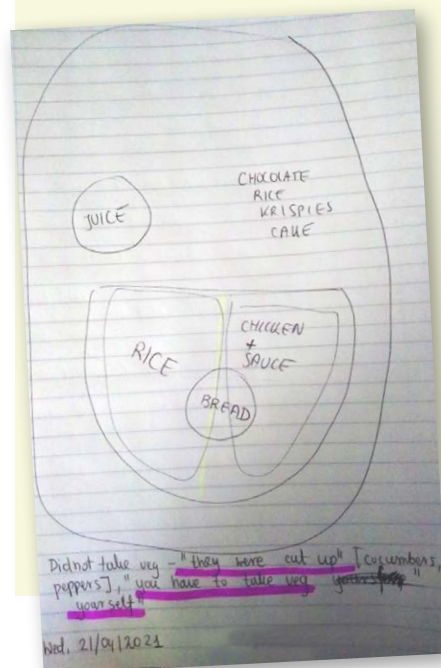 CHOCOLATE
RICE
KRISPIES
CAKE
JUICE
RICE
CHICKEN
+
SAUCE
BREAD
Did not take veg - "they were cut up" [cucumbers,
peppers], "you have to take veg "
yourself"
Wed, 21/04/2021